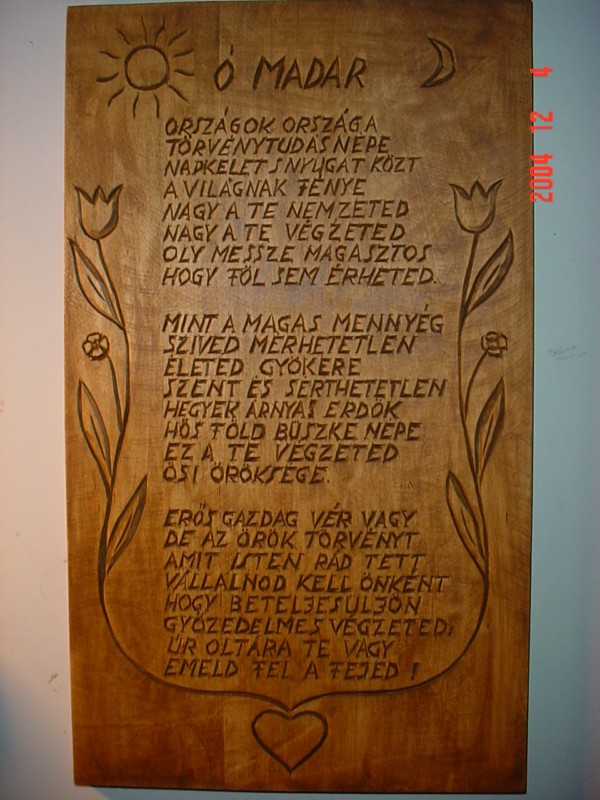 Ó MADAR
ORSZÁGOK ORSZÁGA
TÖRVÉNYTUDÁS NÉPE
NAPKELET S NYUGAT KÖZT
A VILÁGNAK FÉNYE
NAGY A TE NEMZETED
NAGY A TE VÉGZETED
OLY MESSZE MAGASZTOS
HOGY FÖL SEM ÉRHETED.
MINT A MAGAS MENNYÉG
SZIVED MÉRHETETLEN
ÉLETED GYÖKERE
SZENT ÉS SÉRTHETETLEN
HEGYEK ÁRNYAS ERDŐK
HŐS FÖLD BÜSZKE NÉPE
EZ A TE VÉGZETED
ŐSI ÖRÖKSÉGE.
ERŐS GAZDAG VÉR VAGY
DE AZ ÖRÖK TÖRVÉNYT
AMIT ISTEN RÁD TETT
VÁLLALNOD KELL ÖNKÉNT
HOGY BETELJESÜLJÖN
GYŐZEDELMES VÉGZETED;
ÚR OLTÁRA TE VAGY
EMELD FEL A FEJED !
2004 12 4